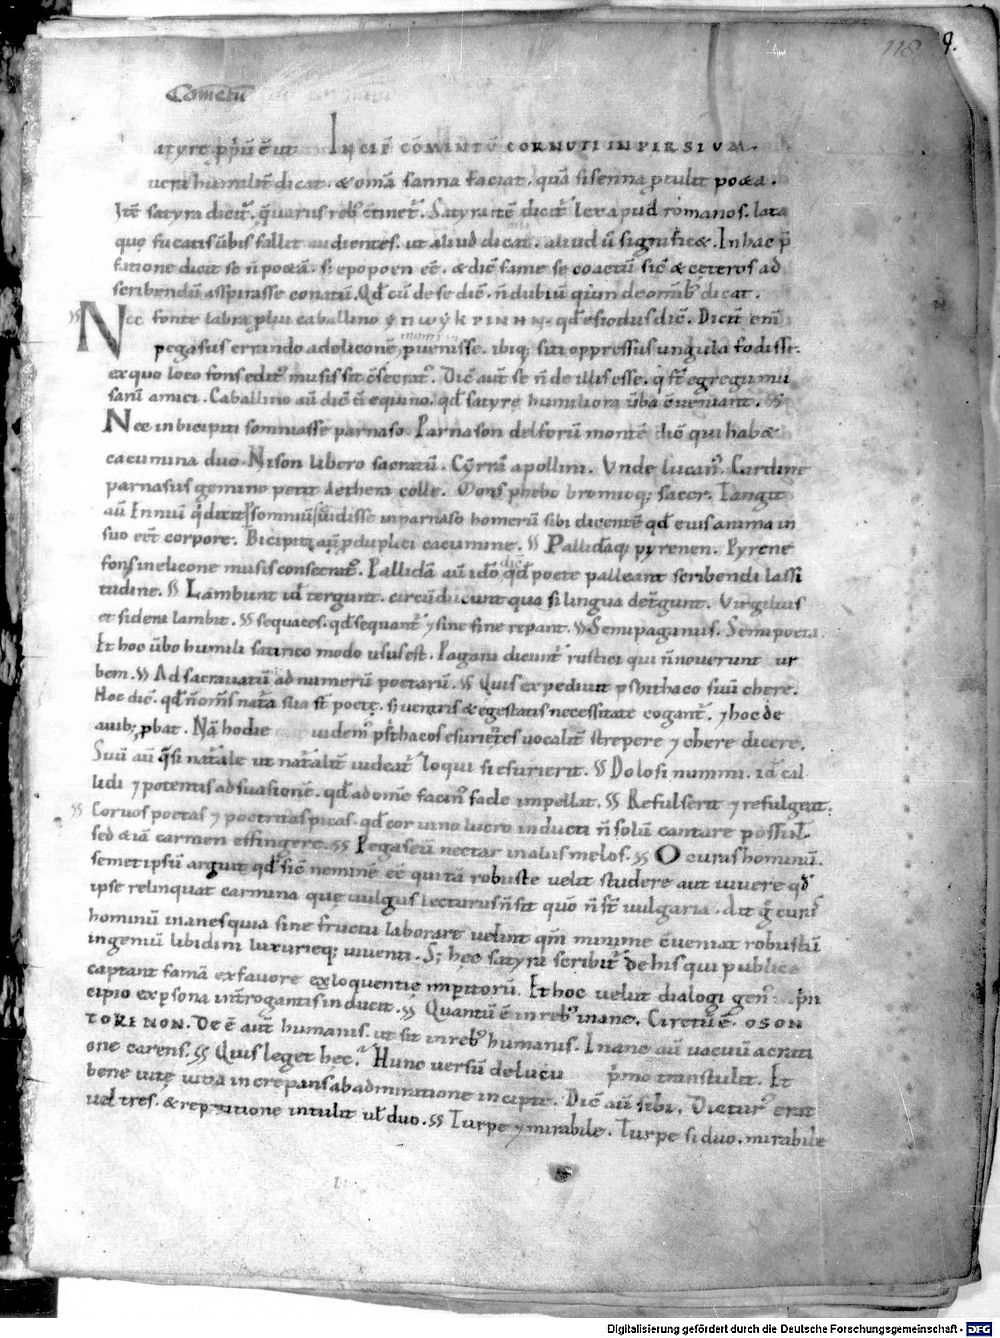 118 9.
Comētū
atyrę ꝓpriū ē ut INCIP̄ CŌMINTŪ CORNUTI IN PERSIUM.
uera humilit̄ dicat. & omā sanna faciat. quā sisenna ꝓtulit poeta.
Itē satyra dicit̄. q̄ uarus reb; ctinet̄. Satyra itē dicit̄ lex apud romanos. lata
quę fucatis ūbis fallit audientes. ut aliud dicat. aliud ū significet. In hac p̄
fatione dicit se ñ poetā. s; epopoen eē. & dic̄ fame se coactū sic̄ & ceteros ad
scribendū asspirasse conatū. Qd̄ cū de se dic̄. ñ dubiū quin de omīb; dicat.
Nec fonte labra plui caballino qd̄ esiodus dic̄. Dicit̄ enī
pegasus errando ad elicone ꝑuenisse. ibiq; siti oppressus ungula fodisse.
ex quo loco fons edit; musis sit c̄secrat;. Dic̄ aut̄ se ñ de illis esse. q st̄ egregii mu
sarū amici. Caballino aū dic̄ ñ equino. qd̄ satyrę humiliora ūba c̄ueniant. 
Nec in bicipiti somniasse parnaso. Parnason delforū montē dic̄ qui habet
cacumina duo. Nison libero sacratū. Cyrrā apollini. Unde lucan;. Cardine
parnasus gemino petit aethera colle. Mons phebo bromioq; sacer. Tangit
aū Enniū q̄ dicit somniū uidisse in parnaso homerū sibi dicentē qd̄ eius anima in
suo eēt corpore. Bicipiti aū ꝓ duplici cacumine. Pallidāq; pyrenen. Pyrene
fons in elicone musis consecrat;. Pallidā aū idō dic̄ qd̄ poete palleant scribendi lassi
tudine. Lambunt id̄ tergunt. circūducunt qua si lingua deterḡunt. Virgilius
et sidera lambit. sequaces. qd̄ sequant̄ ⁊ sine fine repant. Semipaganus. Semipoeta.
Et hoc ūbo humili satirico modo usus est. Pagani dicunt̄ rustici qui ñ nouerunt ur
bem. Ad sacra uatū ad numerū poetarū. Quis expediuit psithaco suū chere.
Hoc dic̄. qd̄ ñ om̄s nata sua st̄ poetę. s; uentris & egestatis necessitate cogant̄. ⁊ hoc de
auib; ꝓbat. Nā hodie uidem; psithacos esurietes uocalit̄ strepere ⁊ chere dicere.
Suū aū q̄si natale ut natalit̄ uideat̄ loqui si esurierit. Dolosi nummi. id̄ cal
lidi ⁊ potentis ad suasionē. qd̄ ad omē facin; facle impellat. Refulserit ⁊ refulgeat.
Coruos poetas ⁊ poetrias picas. qd̄ coruino lucro inducti ñ solū cantare possint.
sed & iā carmen effingere. Pegaseiū nectar in alus melos. O curas hominū.
semet ipsū arguit qd̄ sic̄ neminē eē qui ita robuste uelit studere aut uiuere qd̄
ipse relinquat carmina quę uulgus lecturus ñ sit quō ñ st̄ uulgaria. Ait g̊ curas
hominū inanes quia sine fructu laborare uelint qm̄ minime c̄ueniat robustū
ingeniū libidini luxurieq; uiuenti. S; hęc satyra scribit̄ de his qui publice
captant famā ex fauore ex loquentię impitorū. Et hoc uelut dialogi gen; prin
cipio ex ꝑsona int̄rogantis inducit. Quantū ē in reb; inane. Circtū ē. OSON
TORI NON. De ē aut̄ humanis. ut sit in reb; humanis. Inane aū uacuū a crati
one carens. Quis leget hęc. Hunc uersū de lucii p̄mo transtulit. Et
bene uitę uitia increpans ab admiratione incipit. Dic̄ aū sibi. Dictur; erat
uel tres. & repetitione intulit ul̄ duo. Turpe ⁊ mirabile. Turpe si duo. mirabile
Digitalisierung gefördert durch die Deutsche Forschungsgemeinschaft - DFG